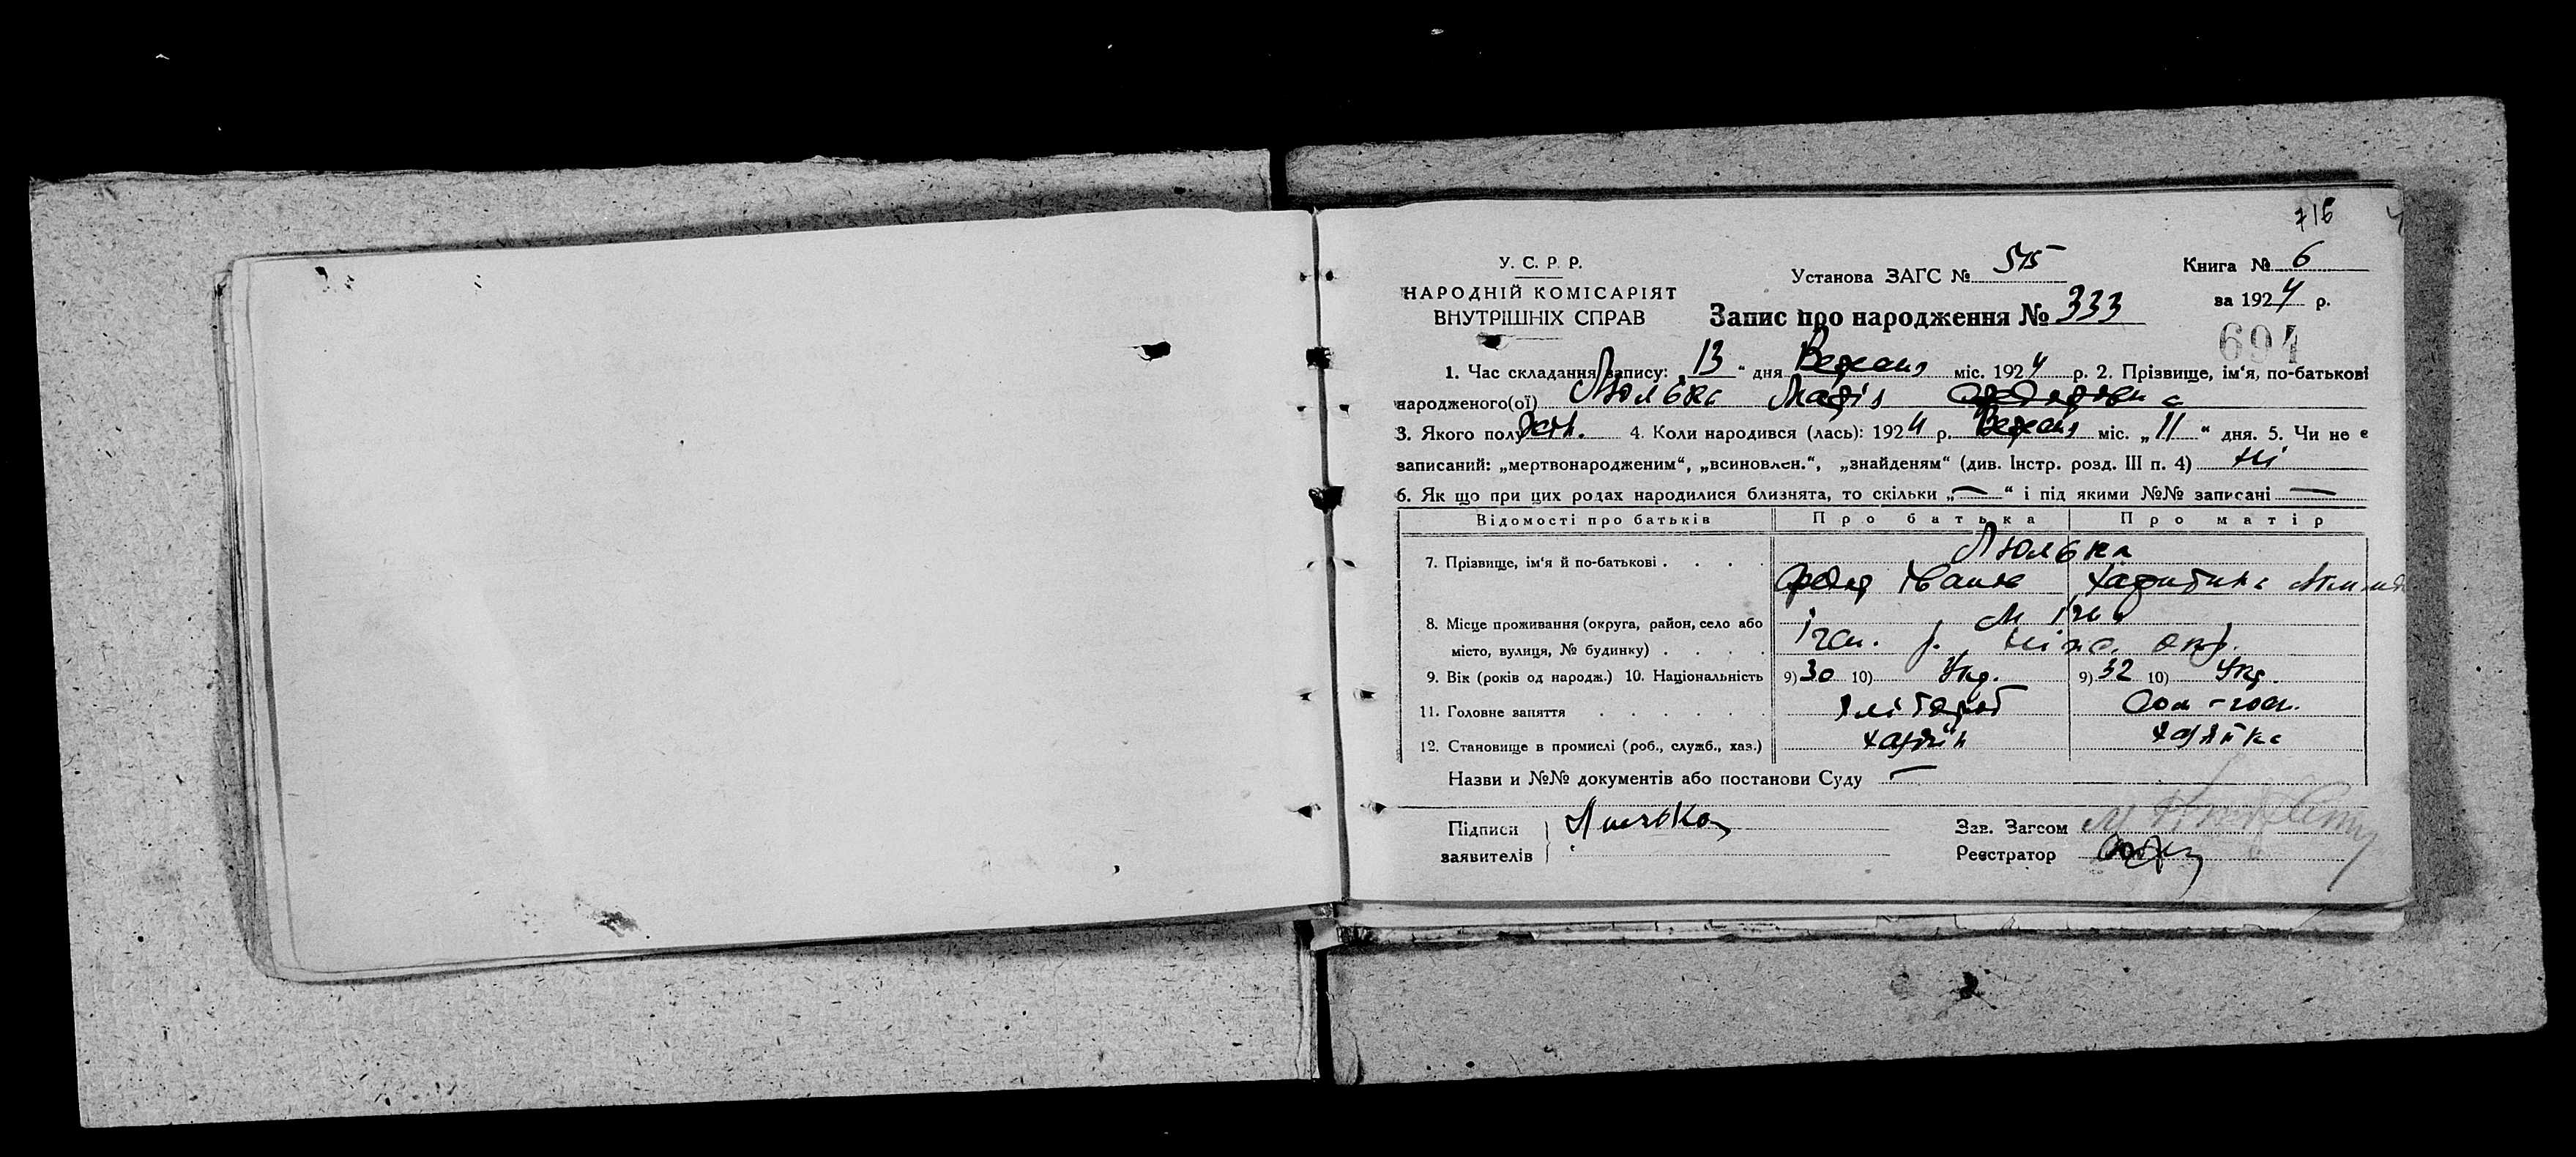 716
У. С. Р. Р.
НАРОДНІЙ КОМІСАРІЯТ
ВНУТРІШНІХ СПРАВ
Установа ЗАГС № 515
Книга № 6
за 1924 р.
Запис про народження № 333
694
1. Час складання запису: „13“ дня Вересня міс. 1924 р. 2. Прізвище, ім‘я, по-батькові
народженого(ої) Люлька Марія Федоровна
3. Якого полу жін. 4. Коли народився (лась): 1924 р. Вересня міс. „11“ дня. 5. Чи не є
записаний: „мертвонародженим“, „всиновлен.“, „знайденям“ (див. Інстр. розд. III п. 4) ні
6. Як що при цих родах народилися близнята, то скільки „—“ і під якими №№ записані —
Відомості про батьків Про батька Про матір
7. Прізвище, ім‘я й по-батькові . . . . Люлька
Федор Іванов Харитина
8. Місце проживання (округа, район, село або М Ічня
місто, вулиця, № будинку) . . . . Ічен. р. Ніжс. окр.
9. Вік (років од народж.) 10. Національність 9) 30 10) Укр. 9) 32 10) Укр.
11. Головне заняття . . . . . . Хлібороб Дом-госп.
12. Становище в промислі (роб., служб., хаз.) хазяїн хазяйка
Назви и №№ документів або постанови Суду —
Підписи Люлька
заявителів
Зав. Загсом
Реєстратор